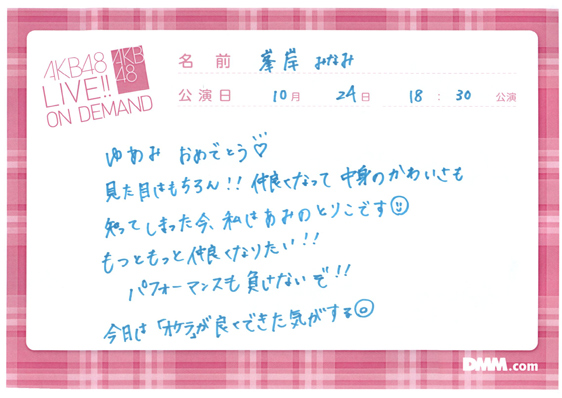 AKB48
LIVE!!
ON DEMAND
AKB
48
名前 峯岸 みなみ
公演日 10月 24日 18:30 公演
ゆあみ おめでとう♡
見た目はもちろん!! 仲良くなって 中身のかわいさも
知ってしまった今、私はあみのとりこです☺
もっともっと仲良くなりたい!!
パフォーマンスも 負けないぞ!!
今日は「オケラ」が良くできた気がする
DMM.com